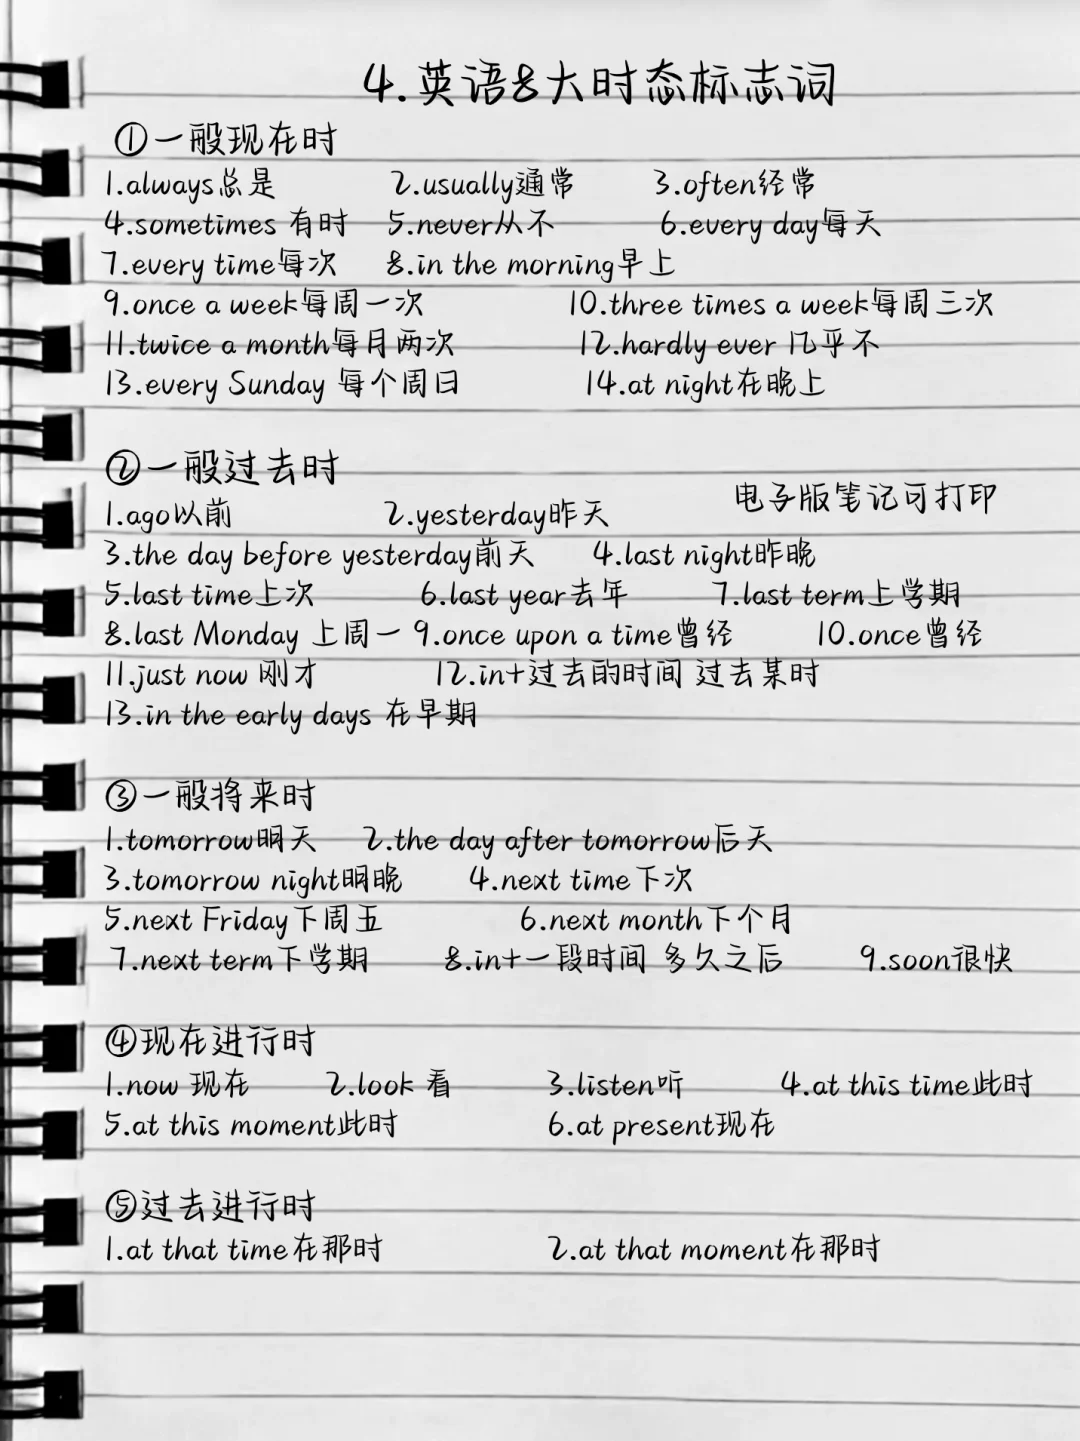 4.英语8大时态标志词
①一般现在时
1.always总是 2.usually通常 3.often经常
4.sometimes 有时 5.never从不 6.every day每天
7.every time每次 8.in the morning早上
9.once a week每周一次 10.three times a week每周三次
11.twice a month每月两次 12.hardly ever 几乎不
13.every Sunday 每个周日 14.at night在晚上
②一般过去时
电子版笔记可打印
1.ago以前 2.yesterday昨天
3.the day before yesterday前天 4.last night昨晚
5.last time上次 6.last year去年 7.last term上学期
8.last Monday 上周一 9.once upon a time曾经 10.once曾经
11.just now 刚才 12.in+过去的时间 过去某时
13.in the early days 在早期
③一般将来时
1.tomorrow明天 2.the day after tomorrow后天
3.tomorrow night明晚 4.next time下次
5.next Friday下周五 6.next month下个月
7.next term下学期 8.in+一段时间 多久之后 9.soon很快
④现在进行时
1.now 现在 2.look 看 3.listen听 4.at this time此时
5.at this moment此时 6.at present现在
⑤过去进行时
1.at that time在那时 2.at that moment在那时